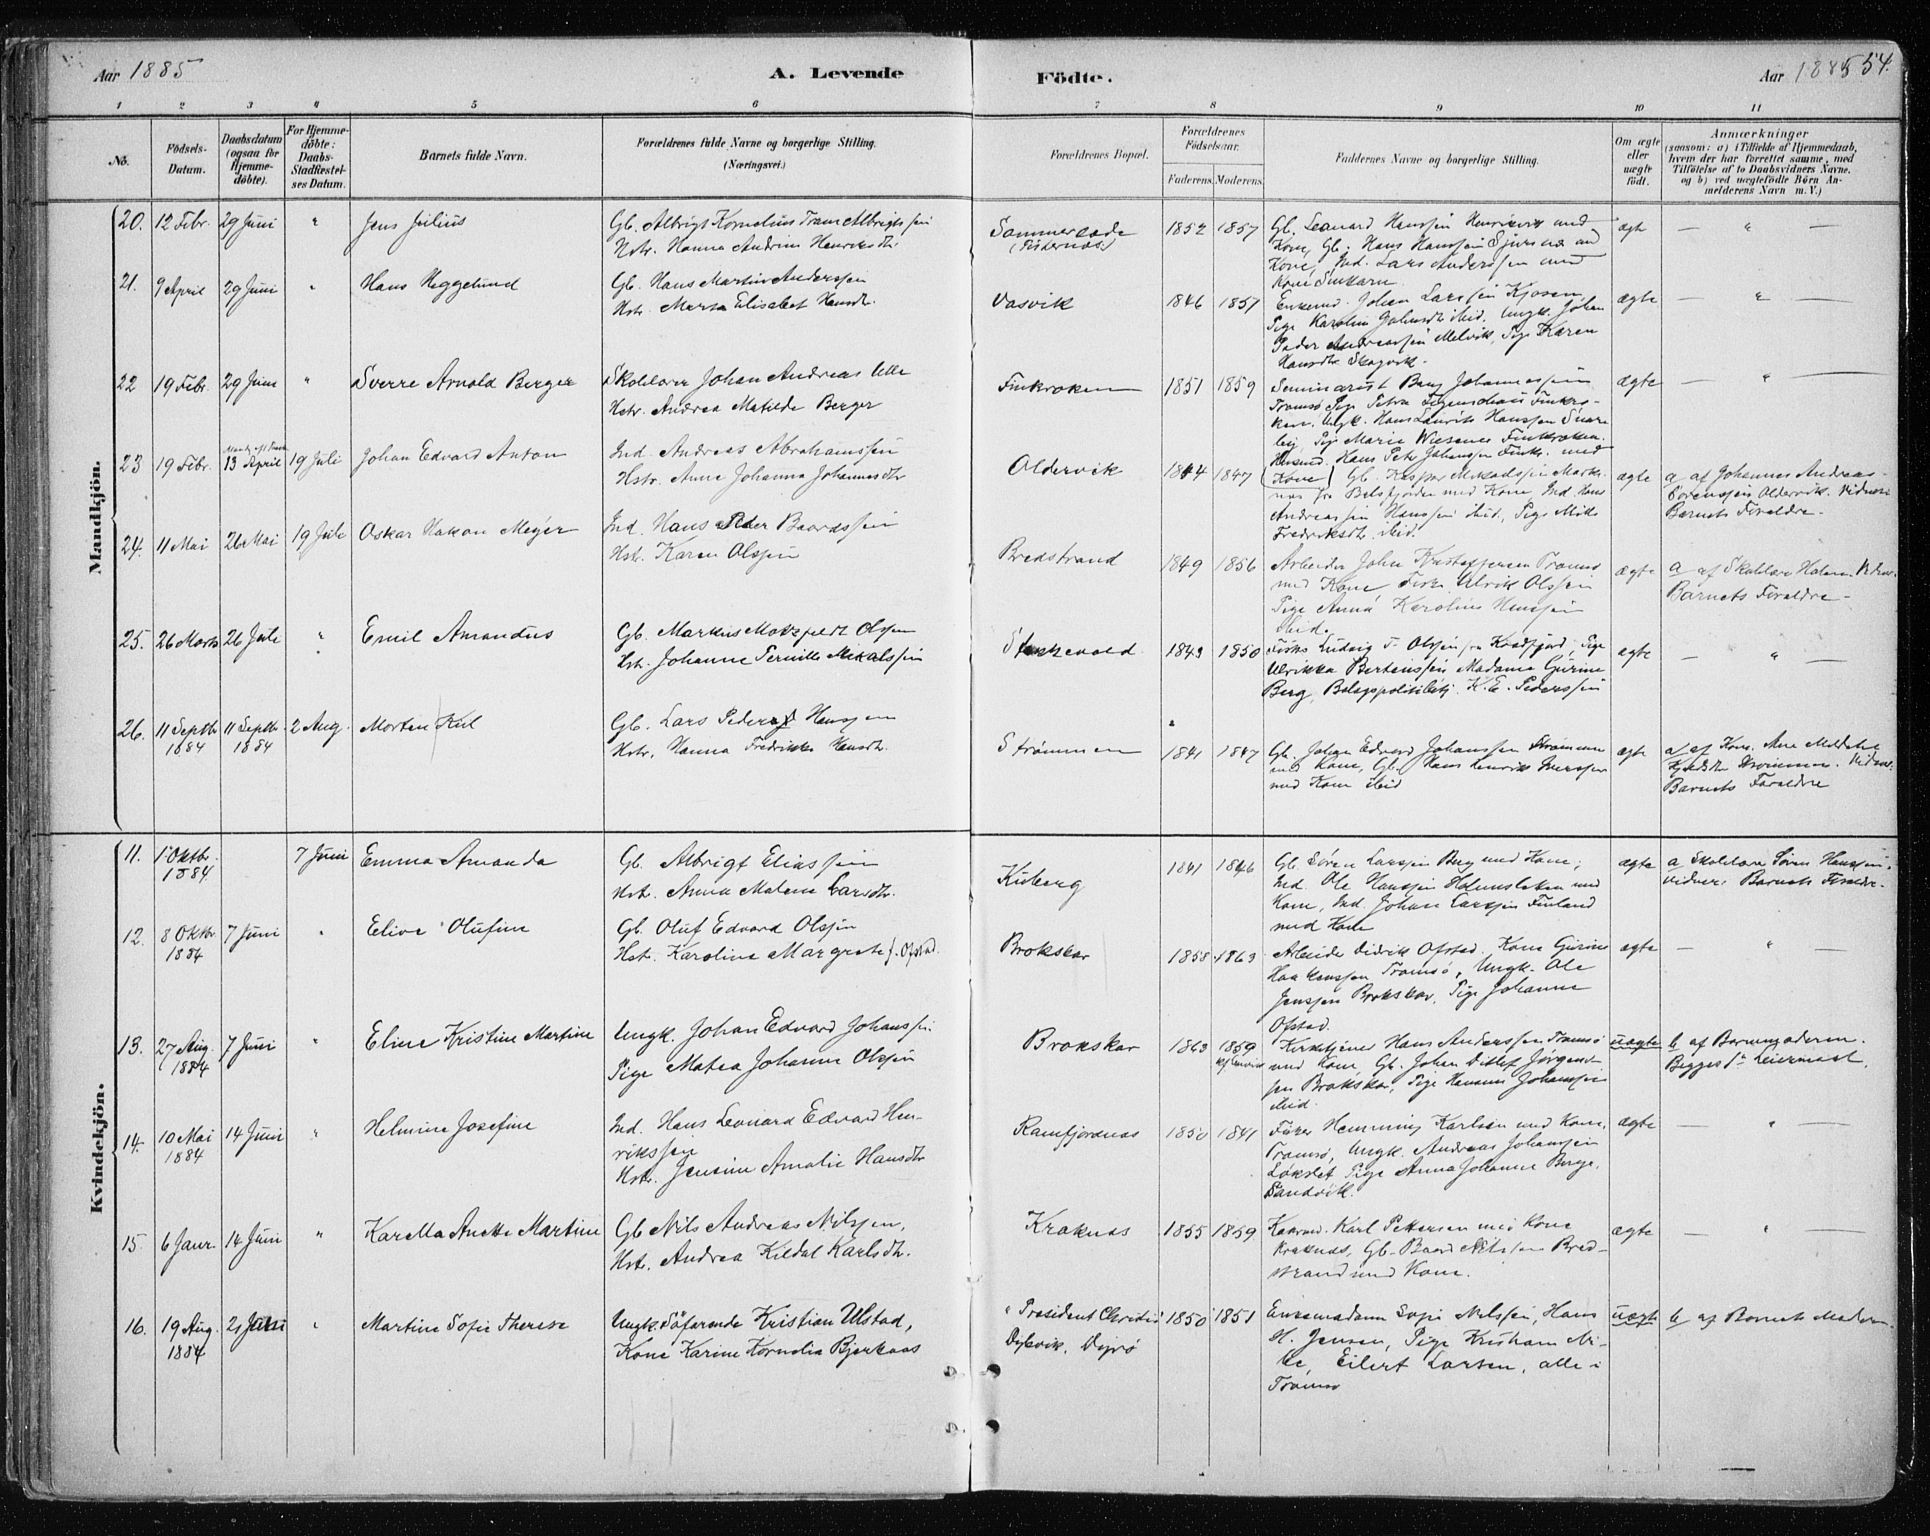 Aar 1885
A. Levende
Födte.
Aar 1885 54.
1 2 3 4 5 6 7 8 9 10 11
No.
Födsels-Datum.
Daabsdatum (ogsaa for Hjemmedöbte).
For Hjemmedöbte: Daabs-Stadfæstelses Datum.
Barnets fulde Navn.
Forældrenes fulde Navne og borgerlige Stilling. (Næringsvei.)
Forældrenes Bopæl.
Forældrenes Födselsaar.
Faderens. Moderens.
Faddernes Navne og borgerlige Stilling.
Om ægte eller uægte födt.
Anmærkninger
(saasom: a) i Tilfælde af Hjemmedaab, hvem der har forrettet samme, med Tilföielse af to Daabsvidners Navne, og b) ved uægtefödte Börn Anmelderens Navn m. V.)
Mandkjön.
20. 12 Febr. 29 Juni " Jens Julius
Gb. Albrigt Kornelius Trane Albrigtssen
Hstr. Hanna Andrine Henriksdtr.
1852 1857
Gb. Leonard Hanssen
Kone, Gb. Hans Hanssen
Kone, Ind. Lars Anderssen med
Kone
ægt — " —
21. 9 April 29 Juni " Hans Heggelund
Gb. Hans Martin Anderssen
Hstr. Marta Elisabet Hansdtr.
Vasvik 1846 1857
Enkemd. Johan Larssen Kjosen
Pige Karolin ibid. Ungk. Johan
Peder Andreassen Melvik, Pige Karen
Hansdtr. Skogvik.
ægte — " —
22 19 Febr. 29 Juni " Sverre Arnold Berger
Skolelærer Johan Andreas
Hstr. Andrea Matilde Berger
Finkroken 1851 1859
Seminarist Johannessen
Tromsö, Pige Petra Figenschau Finkro-
ken, Ungk. Hans Laurits Hanssen
Pige Marie Finkroken.
Hans Petr Johansen Finkr. med
Kone
ægte — " —
23 19 Febr. 13 April 19 Juli Johan Edvard Anton
Ind. Andreas Abrahamssen
Hstr. Anne Johanna Johannesdtr
Oldervik 1844 1847
Gb. Kasper
fra Balsfjorden med Kone, Ind. Hans
Andreassen Hanssen ibid, Pige
Fredriksdtr. ibid.
ægte
a af Johannes Andreas
Sörenssen Oldervik. Vidner:
Barnets Forældre.
24. 11 Mai 26 Mai 19 Juli Oskar Hakon Meyer
Ind. Hans Peder Baardssen
Hstr. Karen Olssen
Bredstrand 1849 1856
Arbeider John Kristoffersen Tromsö
med Kone Ulrik Olssen
Pige Anna Karoline Hanssen
ibid.
ægte
a af Skolelærer Vidner.
Barnets Forældre.
25. 26 Marts 26 Juli " Emil Amandus
Gb. Markus Motzfeldt Olssen
Hstr. Johanne Pernille Mikalssen
1843 1850
Ludvig Olssen fra Kaafjord, Pige
Ulrikka Berntenssen, Madame Gurine
Berg, K. E. Pederssen
ægte — " —
26. 11 Septbr. 1884 11 Septbr. 1884 2 Aug. Morten Kiil
Gb. Lars Peder Hanssen
Hstr. Hanna Fredrikke Hansdtr.
Strömmen 1841 1847
Gb. Johan Edvard Johanssen Strömmen
med Kone, Gb. Hans Henrik Iverssen
med Kone ibid
ægte
a af Kone Ane
Strömmen. Vidner.
Barnets Forældre
Kvindekjön.
11. 1 Oktbr. 1884 7 Juni Emma Amanda
Gb. Albrigt Eliassen
Hstr. Anna Malene Larsdtr.
1841 1846
Gb. Sören Larssen Berg med Kone,
Ind. Ole Hanssen Holmesletten med
Kone, Ind. Johan Larssen Finland
med Kone
ægte
a Skolelærer Sören Hanssen.
Vidner: Barnets Forældre.
12. 8 Oktbr. 1884 7 Juni " Elive Olufine
Gb. Oluf Edvard Olssen
Hstr. Karoline Margrete J. Ofstad.
Brokskar 1858 1863
Arbeider Didrik Ofstad. Kone Gurine
Haakenssen Tromsö, Ungk. Ole
Jenssen Brokskar, Pige Johanne
Ofstad.
ægte — " —
13. 27 Aug. 1884 7 Juni " Eline Kristine Martine
Ungk. Johan Edvard Johanssen.
Pige Matea Johanne Olssen
Brokskar 1863 1859
Kirketjener Hans Anderssen Tromsö
med Kone, Gb. Johan Ditlef Jörgens-
sen Brokskar, Pige Johanssen
ibid.
uægte
b af Barnemoderen.
Begges 1ste Leiermaal.
14. 10 Mai 1884 14 Juni " Helmine Josefine
Ind. Hans Leonard Edvard Hen-
rikssen
Hstr. Jensine Amalie Hansdtr
Ramfjordnæs 1850 1841
Hemming Karlsen med Kone,
Tromsö, Ungk. Andreas Johanssen
Lökslet, Pige Anna Johanne Berge,
Sandvik.
ægte — " —
15. 6 Janr. 14 Juni " Karella Anette Martine
Gb Nils Andreas Nilssen,
Hstr. Andrea Kildal Karlsdtr.
Kraknæs 1855 1859
Karl Pettersen med Kone
Kraknæs, Gb. Baard Nilssen Bred-
strand med Kone.
ægte — " —
16. 19 Aug. 1884 21 Juni " Martine Sofie Therese
Ungk. Söfarende Kristian Ulstad,
Kone Karine Kornelia Bjerkaas
" President Christie
1850 1851
Enkemadam Sofie Nilssen, Hans
H. Jensen, Pige Kristiane Ni-
Eilert Larsen, alle i
Tromsö
uægt
b af Barnets Moder.